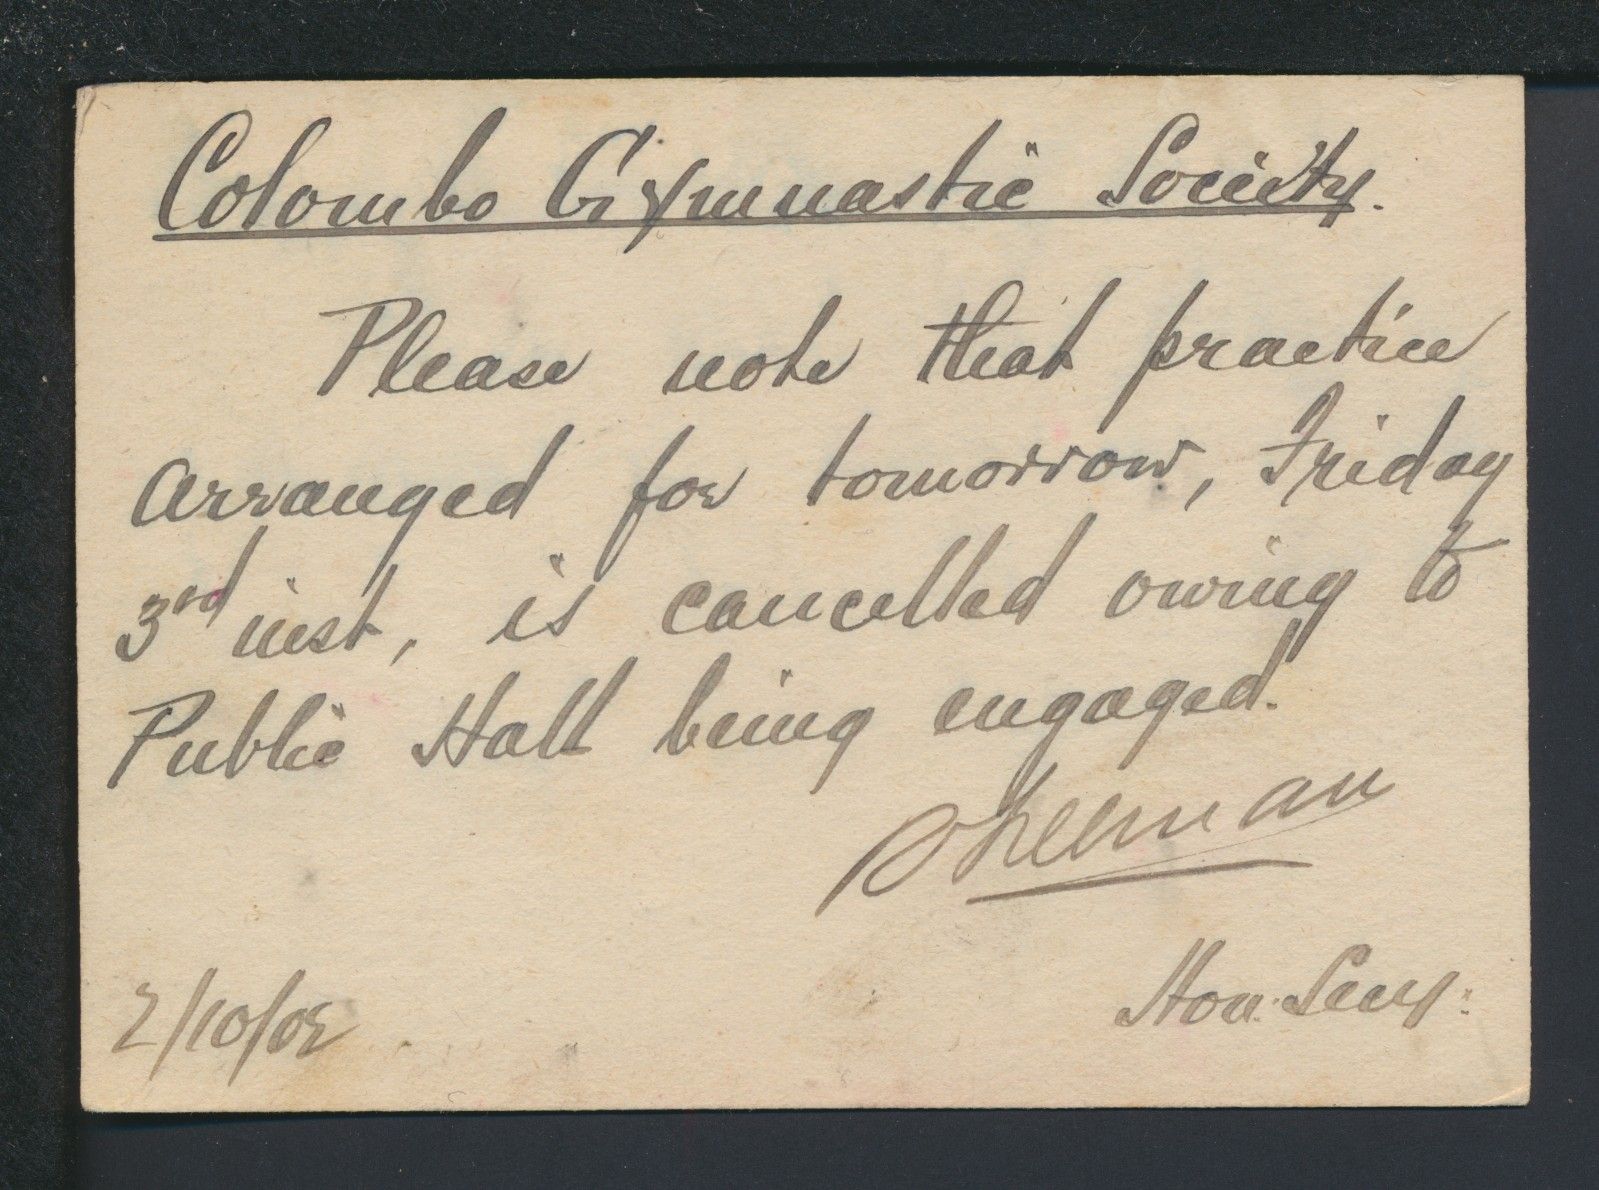 Colombo Gymnastic Society.
Please note that practice
arranged for tomorrow, Friday
3rd inst, is cancelled owing to
Public Hall being engaged.
Hon: Secy:
2/10/02